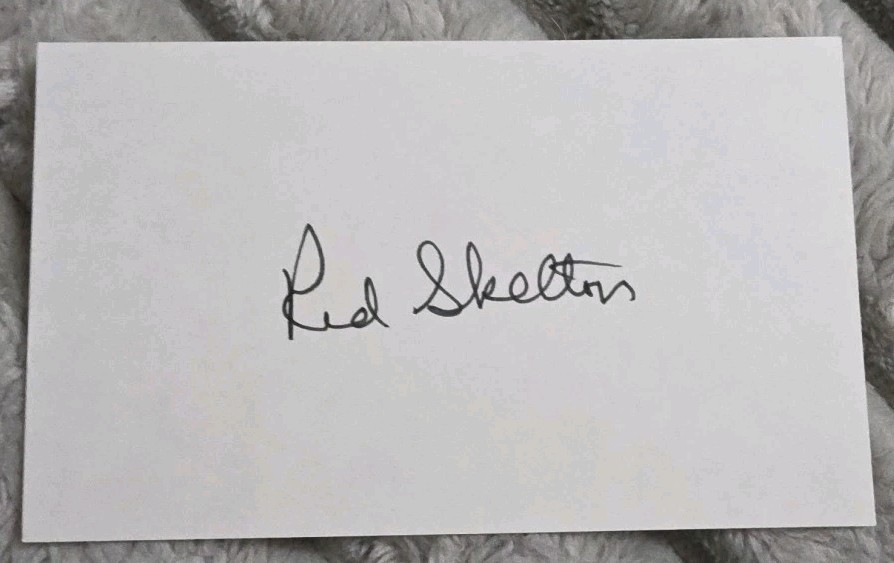 Red Skelton